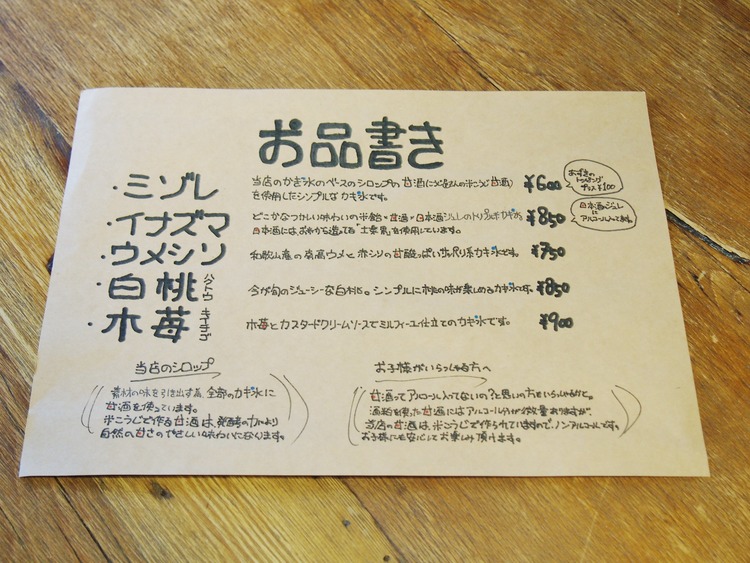 お品書き
・ミゾレ
当店のかき氷のベースのシロップの甘酒(こうじ屋さんの米こうじ甘酒)
を使用したシンプルなカキ氷です。
¥600
あずきの
トッピング
プラス¥100
・イナズマ
どこかなつかしい味わいの米飴・甘酒・日本酒ジュレのトリプルカキ氷。
日本酒には
を使用しています。
¥850
日本酒ジュレに
アルコール入ってます。
・ウメシソ
和歌山産の南高ウメと赤シソの甘酸っぱいサッパリ系カキ氷です。
¥750
・白桃
ハクトウ
今が旬のジューシーな白桃。シンプルに桃の味が楽しめるカキ氷です。
¥850
・木苺
キイチゴ
木苺とカスタードクリームソースでミルフィーユ仕立てのカキ氷です。
¥900
当店のシロップ
素材の味を引き出す為、全部のカキ氷に
甘酒を使っています。
米こうじで作る甘酒は、発酵の力により
自然の甘さのやさしい味わいになります。
お子様がいらっしゃる方へ
甘酒ってアルコール入ってないの?と思いの方もいらっしゃるけど。
酒粕を使った甘酒にはアルコール分が微量ありますが、
当店の甘酒は、米こうじで作られていますので、ノンアルコールです。
お子様にも安心してお楽しみ頂けます。